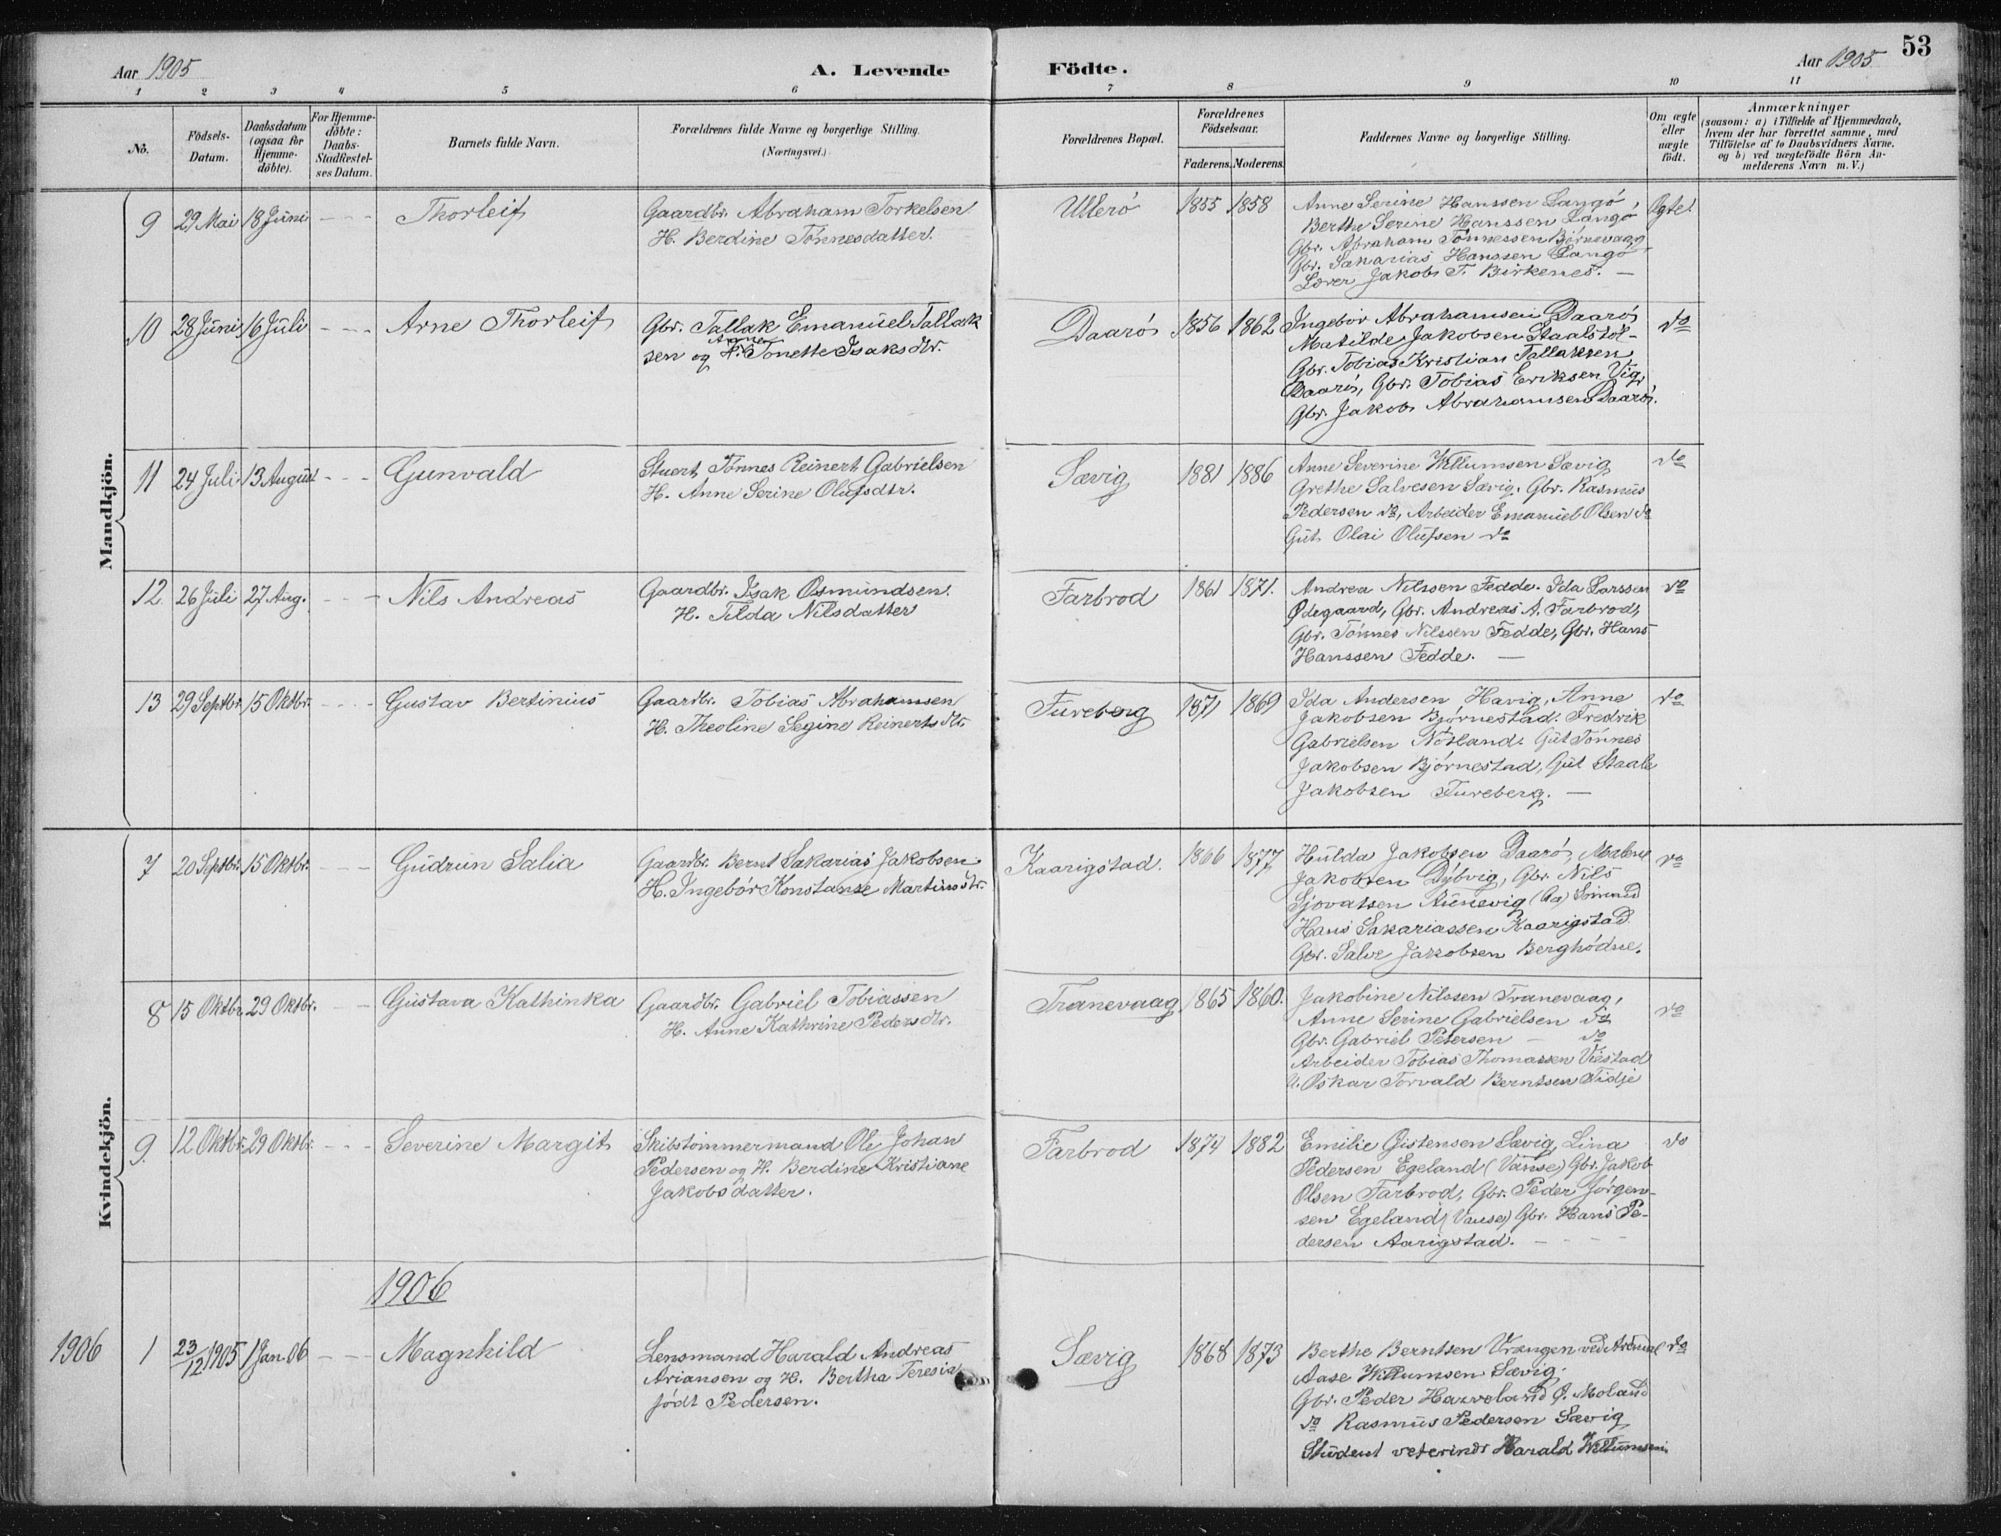 53
Aar 1905
A. Levende Födte.
Aar 1905
1 2 3 4 5 6 7 8 9 10 11
No.
Födsels-
Datum.
Daabsdatum
(ogsaa for
Hjemme-
döbte).
For Hjemme-
döbte:
Daabs-
Stadfæstel-
ses Datum.
Barnets fulde Navn.
Forældrenes fulde Navne og borgerlige Stilling.
(Næringsvei.)
Forældrenes Bopæl.
Forældrenes
Födselsaar.
Faderens. Moderens.
Faddernes Navne og borgerlige Stilling.
Om ægte
eller
uægte
födt.
Anmærkninger
(saasom: a) i Tilfælde af Hjemmedaab,
hvem der har forrettet samme, med
Tilföielse af to Daabsvidners Navne.
og b) ved uægtefödte Börn An-
melderens Navn m. V.)
Mandkjön.
9 29 Mai 18 Juni - - - Thorleif
Gaardbr. Abraham Torkelsen
H. Berdine Tönnesdatter.
Ullerö 1855 1858
Anne Serine Hanssen Langö
Berthe Serine Hanssen Langö,
Gbr. Abraham Tönnessen Björnevaag
Gbr. Sakarias Hanssen Langö
Lærer Jakob T. Birkenes. —
Ægte.
10 28 Juni 16 Juli - - - Arne Thorleif
Gbr. Tallak Emanuel Tallak
sen og H. Anne Tonette Isaksdtr.
Daarö 1856 1862
Ingebor Abrahamsen Daarö
Matilde Jakobsen Staalstöl-
Gbr. Tobias Kristian Tallaksen
Daarö, Gbr. Tobias Eriksen Vig,
Gbr. Jakob Abrahamsen Daarö.
do
11 24 Juli 13 August - - - Gunvald
Stuert Tönnes Reinert Gabrielsen
H. Anne Serine Olufsdtr.
Sævig 1881 1886
Anne Severine Willumsen Sævig
Grethe Salvesen Sævig. Gbr. Rasmus
Pedersen do, Arbeider Emanuel Olsen do
Gut Olai Olufsen do
do
12. 26 Juli 27 Aug. - - - Nils Andreas
Gaardbr. Isak Osmundsen.
H. Tilda Nilsdatter
Farbrod 1861 1871.
Andrea Nilssen Fedde. Ida Larssen
Ødegaard, Gbr. Andreas A. Farbrod,
Gbr. Tönnes Nilssen Fedde, Gbr. Hans
Hanssen Fedde. —
do
13 29 Septbr. 15 Oktbr. - - - Gustav Bertinius
Gaardbr. Tobias Abrahamsen
H. Theoline Segine Reinertsdtr
Fureberg 1871 1869
Ida Andersen Havig, Anne
Jakobsen Björnestad. Fredrik
Gabrielsen Nötland. Gut Tönnes
Jakobsen Björnestad, Gut Staale
Jakobsen Fureberg. —
do
Kvindekjön.
7 20 Septbr. 15 Oktbr. - - - Gudrun Salia
Gaardbr. Bernt Sakarias Jakobsen
H. Ingebör Konstanse Martinsdtr.
Kaarigstad. 1866 1877
Hulda Jakobsen Daarö, Malene
Jakobsen Dybvig, Gbr. Nils
Sjovatsen Aunevig (Aa) Sömand
Hans Sakariassen Kaarigstad
Gbr. Salve Jakobsen Berghödne.
do
8 15 Oktbr 29 Oktbr. - - Gustava Kathinka
Gaardbr. Gabriel Tobiassen
H. Anne Kathrine Pedersdtr.
Tranevaag 1865 1860.
Jakobine Nilssen Tranevaag,
Anne Serine Gabrielsen do
Gbr. Gabriel Petersen — do
Arbeider Tobias Thomassen Viestad
Oskar Torvald Berntsen Fidje
do
9. 12 Oktbr. 29 Oktbr. - - - Severine Margit
Skibstömmermand Ole Johan
Pedersen og H. Berdine Kristiane
Jakobsdatter.
Farbrod 1874 1882
Emilie Gistensen Sævig, Lina
Pedersen Egeland (Vanse) Gbr. Jakob
Olsen Farbrod, Gbr. Peder Jörgen-
sen Egeland (Vanse) Gbr. Hans Pe-
dersen Aarigstad. - - - -
do
1906
1906 1 23/12 1905 1 Jan. 06 - - - Magnhild
Lensmand Harald Andreas
Ariansen og H. Bertha Teresia
födt Pedersen.
Sævig 1868 1873
Berthe Berntsen Vrangen ved Arendal
Aase Willumsen Sævig.
Gbr. Peder Haaveland Ö. Moland
do Rasmus Pedersen Sævig
Student veterinær Harald Willumsen
do